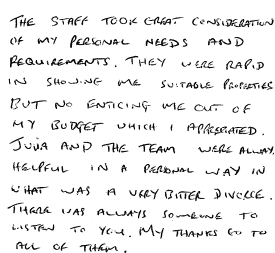 THE STAFF TOOK GREAT CONSIDERATION
OF MY PERSONAL NEEDS AND
REQUIREMENTS. THEY WERE RAPID
IN SHOWING ME SUITABLE PROPERTIES
BUT NO ENTICING ME OUT OF
MY BUDGET WHICH I APPRECIATED.
JULIA AND THE TEAM WERE ALWAYS
HELPFUL IN A PERSONAL WAY IN
WHAT WAS A VERY BITTER DIVORCE.
THERE WAS ALWAYS SOMEONE TO
LISTEN TO YOU. MY THANKS GO TO
ALL OF THEM.